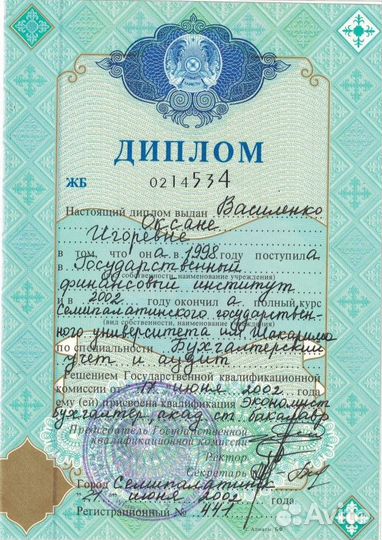 ДИПЛОМ
ЖБ 0214534
Настоящий диплом выдан Василенко
Оксане
Игоревне
в том, что она в 1998 году поступила
в Государственный
(вид собственности, наименование учреждения)
финансовый институт
и в 2002 году окончила полный курс
Семипалатинского государствен-
ного университета им. Шакарима
(вид собственности, наименование учреждения)
по специальности Бухгалтерский
учет и аудит
Решением Государственной квалификационной
комиссии от 17 июня 2002 года
ему (ей) присвоена квалификация Экономист
бухгалтер, акад. ст. бакалавр
Председатель Государственной
квалификационной комиссии
Ректор
Секретарь
Город Семипалатинск
"21" июня 2002 г.
Регистрационный № 441
Avito